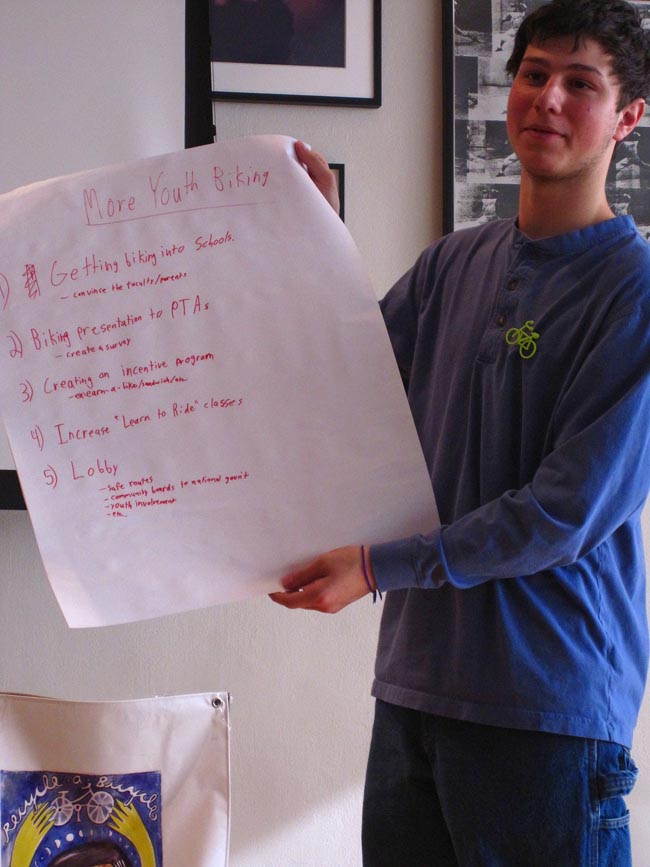 More Youth Biking
1) Getting biking into Schools.
- convince the faculty/parents
2) Biking presentation to PTAs
- create a survey
3) Creating an incentive program
- earn-a-bike/sandwich/etc.
4) Increase "Learn to Ride" classes
5) Lobby
- safe routes
- community boards to national gov't
- youth involvement
- etc.
recycle a bicycle